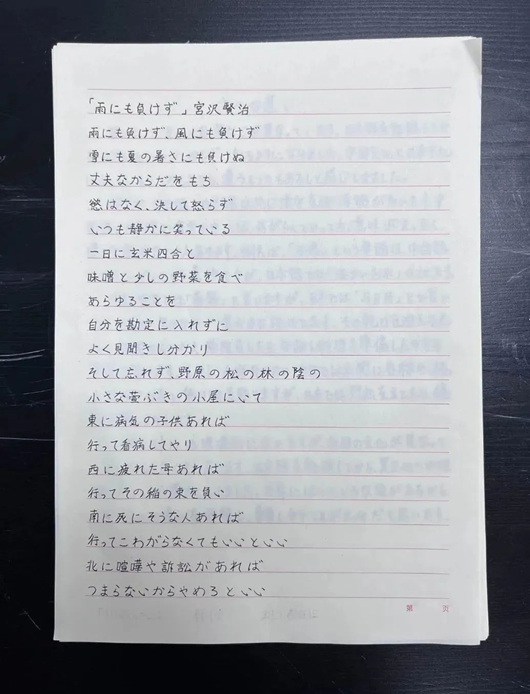 「雨にも負けず」宮沢賢治
雨にも負けず、風にも負けず
雪にも夏の暑さにも負けぬ
丈夫なからだをもち
慾はなく、決して怒らず
いつも静かに笑っている
一日に玄米四合と
味噌と少しの野菜を食べ
あらゆることを
自分を勘定に入れずに
よく見聞きし分かり
そして忘れず、野原の松の林の陰の
小さな萱ぶきの小屋にいて
東に病気の子供あれば
行って看病してやり
西に疲れた母あれば
行ってその稲の束を負い
南に死にそうな人あれば
行ってこわがらなくてもいいといい
北に喧嘩や訴訟があれば
つまらないからやめろといい
第 页